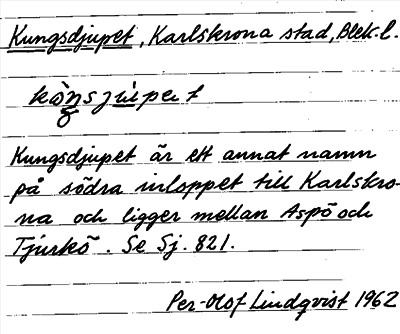 Kungsdjupet, Karlskrona stad, Blek. l.
kòŋsjúpet
Kungsdjupet är ett annat namn
på södra inloppet till Karlskro-
na och ligger mellan Aspö och
Tjurkö. Se Sj. 821.
Per-Olof Lindqvist 1962